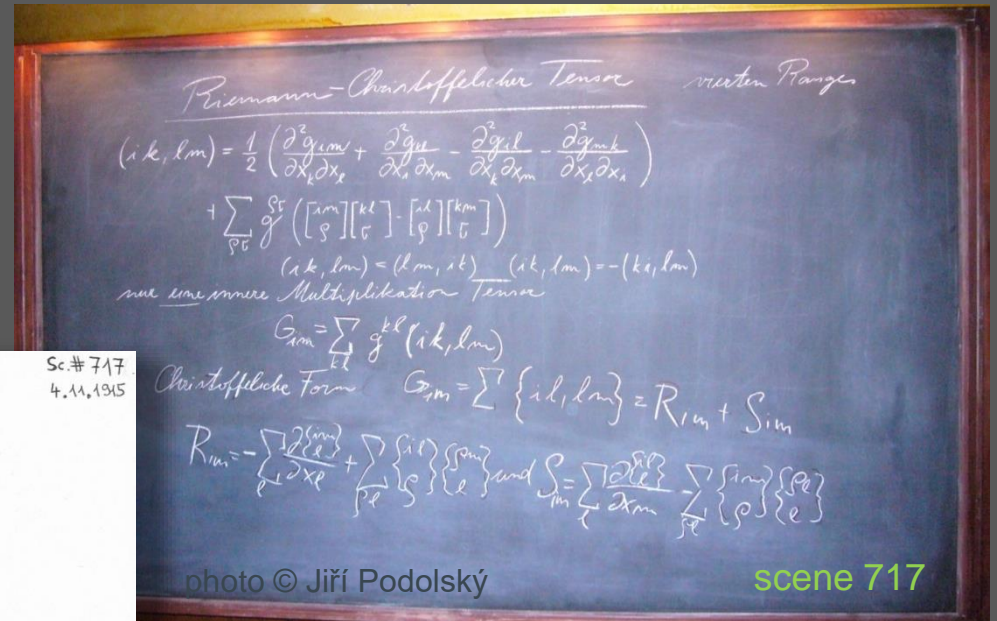 Riemann-Christoffelscher Tensor vierten Ranges
(ik, lm) = 1/2 (∂²g_im/∂x_k∂x_l + ∂²g_kl/∂x_i∂x_m - ∂²g_il/∂x_k∂x_m - ∂²g_mk/∂x_l∂x_i)
+ ∑_ρσ g^ρσ ([im ρ][kl σ] - [il ρ][km σ])
(ik, lm) = (lm, ik) (ik, lm) = -(ki, lm)
nur eine innere Multiplikation Tensor
G_im = ∑_kl g^kl (ik, lm)
Sc.# 717
4.11.1915
Christoffelsche Form G_im = ∑ {il, lm} = R_im + S_im
R_im = -∑_l ∂{im l}/∂x_l + ∑_ρl {il ρ}{ρm l} und S_im = ∑_l ∂{il l}/∂x_m - ∑_ρl {im ρ}{ρl l}
photo © Jiří Podolský
scene 717